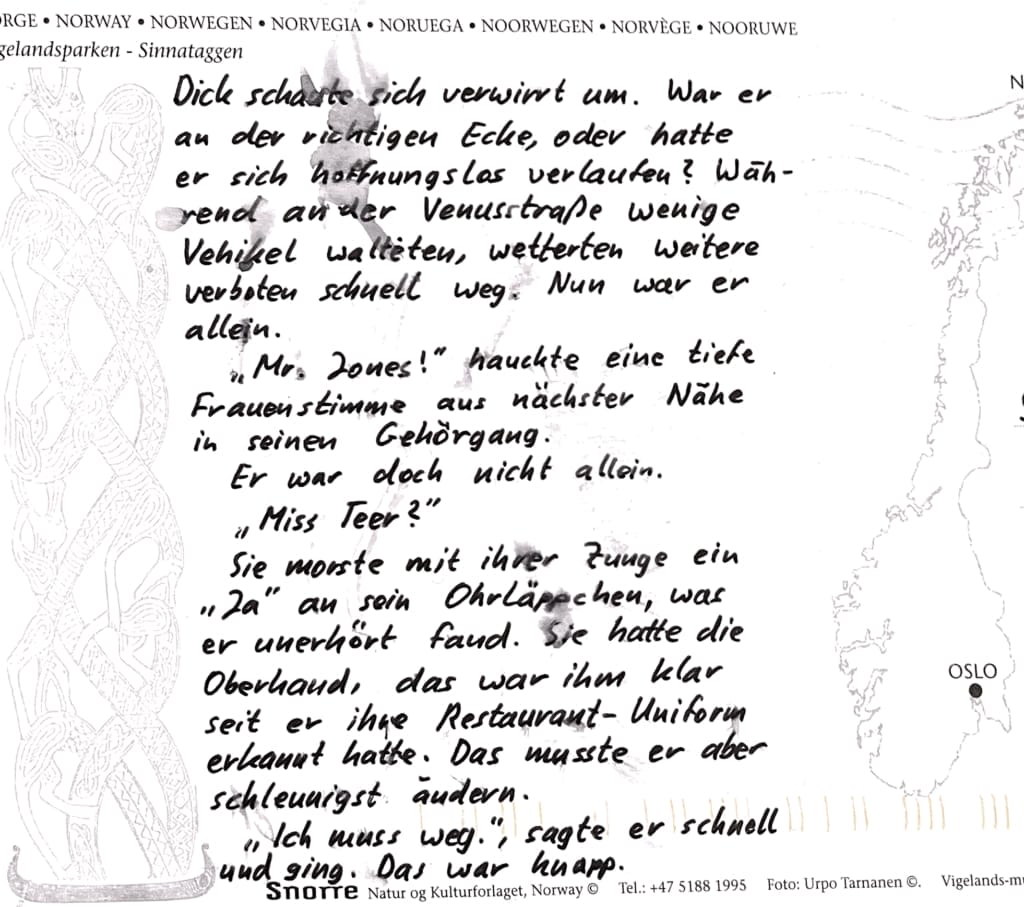 ORGE • NORWAY • NORWEGEN • NORVEGIA • NORUEGA • NOORWEGEN • NORVÈGE • NOORUWE
gelandsparken - Sinnataggen
N
Dick schaute sich verwirrt um. War er
an der richtigen Ecke, oder hatte
er sich hoffnungslos verlaufen? Wäh-
rend an der Venusstraße wenige
Vehikel walteten, wetterten weitere
verboten schnell weg. Nun war er
allein.
„Mr. Jones!“ hauchte eine tiefe
Frauenstimme aus nächster Nähe
in seinen Gehörgang.
Er war doch nicht allein.
„Miss Teer?“
Sie morste mit ihrer Zunge ein
„Ja“ an sein Ohrläppchen, was
er unerhört fand. Sie hatte die
Oberhand, das war ihm klar
seit er ihre Restaurant-Uniform
erkannt hatte. Das musste er aber
schleunigst ändern.
„Ich muss weg.“, sagte er schnell
und ging. Das war knapp.
OSLO
Snorre Natur og Kulturforlaget, Norway © Tel.: +47 5188 1995 Foto: Urpo Tarnanen ©. Vigelands-mu